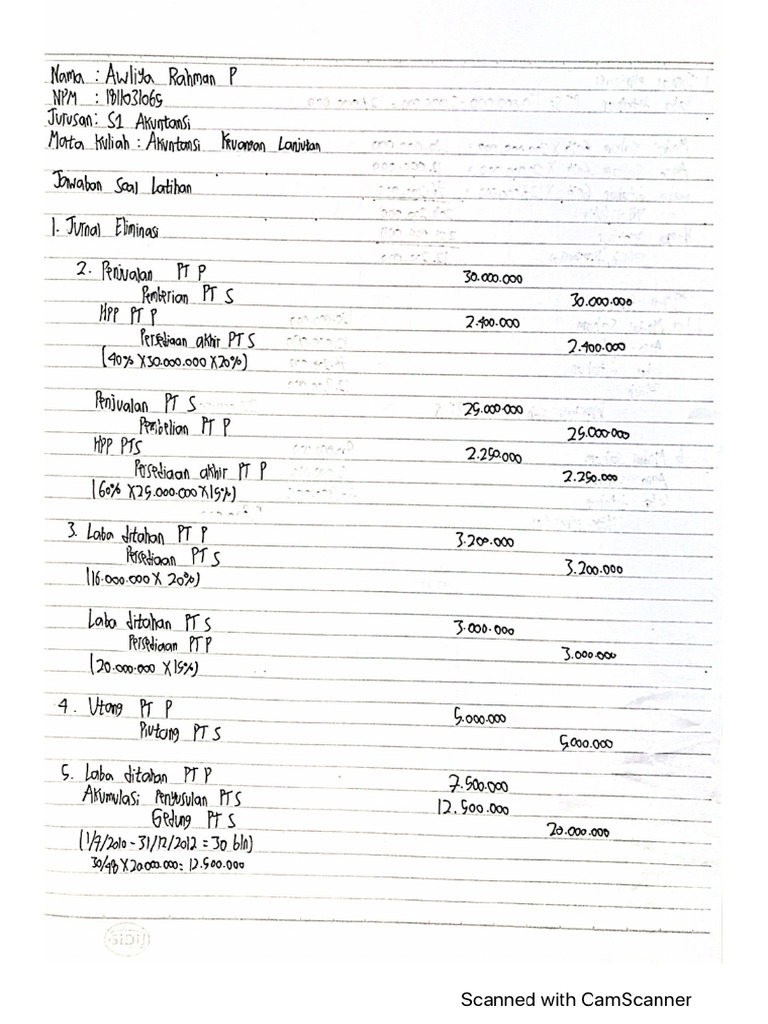 Nama : Awliya Rahman P
NPM : 1811031065
Jurusan: S1 Akuntansi
Mata Kuliah : Akuntansi Keuangan Lanjutan
Jawaban Soal Latihan
1. Jurnal Eliminasi
2. Penjualan PT P 30.000.000
Pembelian PT S 30.000.000
HPP PT P 2.400.000
Persediaan akhir PT S 2.400.000
(40% X30.000.000 X20%)
Penjualan PT S 25.000.000
Pembelian PT P 25.000.000
HPP PTS 2.250.000
Persediaan akhir PT P 2.250.000
(60% X25.000.000X15%)
3. Laba ditahan PT P 3.200.000
Persediaan PT S 3.200.000
(16.000.000 X 20%)
Laba ditahan PT S 3.000.000
Persediaan PT P 3.000.000
(20.000.000 X15%)
4. Utang PT P 5.000.000
Piutang PT S 5.000.000
5. Laba ditahan PT P 7.500.000
Akumulasi Penyusulan PT S 12.500.000
Gedung PT S 20.000.000
(1/7/2010 - 31/12/2012 = 30 bln)
30/48 X 20.000.000= 12.500.000
Scanned with CamScanner